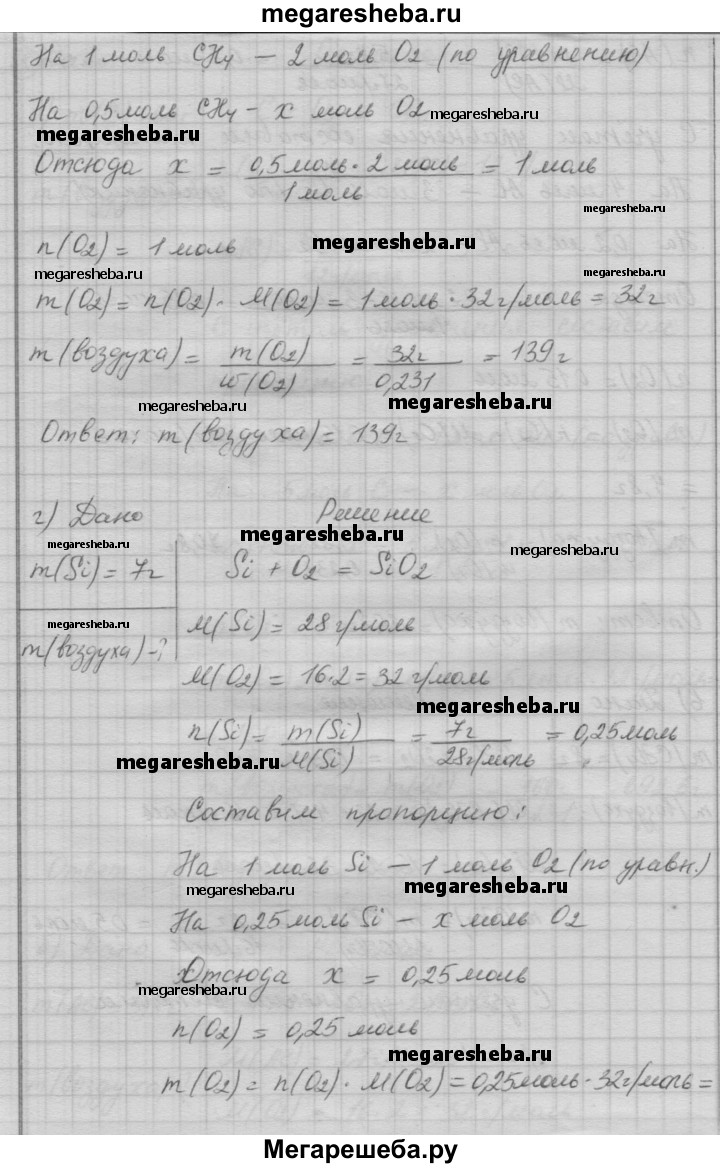 megaresheba.ru
На 1 моль CH4 – 2 моль O2 (по уравнению)
На 0,5 моль CH4 – x моль O2
megaresheba.ru
megaresheba.ru
Отсюда x = 0,5 моль · 2 моль / 1 моль = 1 моль
megaresheba.ru
n(O2) = 1 моль
megaresheba.ru
megaresheba.ru
megaresheba.ru
m(O2) = n(O2) · M(O2) = 1 моль · 32 г/моль = 32 г
m(воздуха) = m(O2) / w(O2) = 32 г / 0,231 = 139 г
megaresheba.ru
megaresheba.ru
Ответ: m(воздуха) = 139 г
г) Дано Решение
megaresheba.ru
megaresheba.ru
megaresheba.ru
m(Si) = 7 г Si + O2 = SiO2
megaresheba.ru
M(Si) = 28 г/моль
m(воздуха) - ?
M(O2) = 16·2 = 32 г/моль
megaresheba.ru
n(Si) = m(Si) / M(Si) = 7 г / 28 г/моль = 0,25 моль
megaresheba.ru
Составим пропорцию:
На 1 моль Si – 1 моль O2 (по уравн.)
megaresheba.ru
megaresheba.ru
На 0,25 моль Si – x моль O2
Отсюда x = 0,25 моль
megaresheba.ru
n(O2) = 0,25 моль
megaresheba.ru
m(O2) = n(O2) · M(O2) = 0,25 моль · 32 г/моль =
Мегарешеба.ру